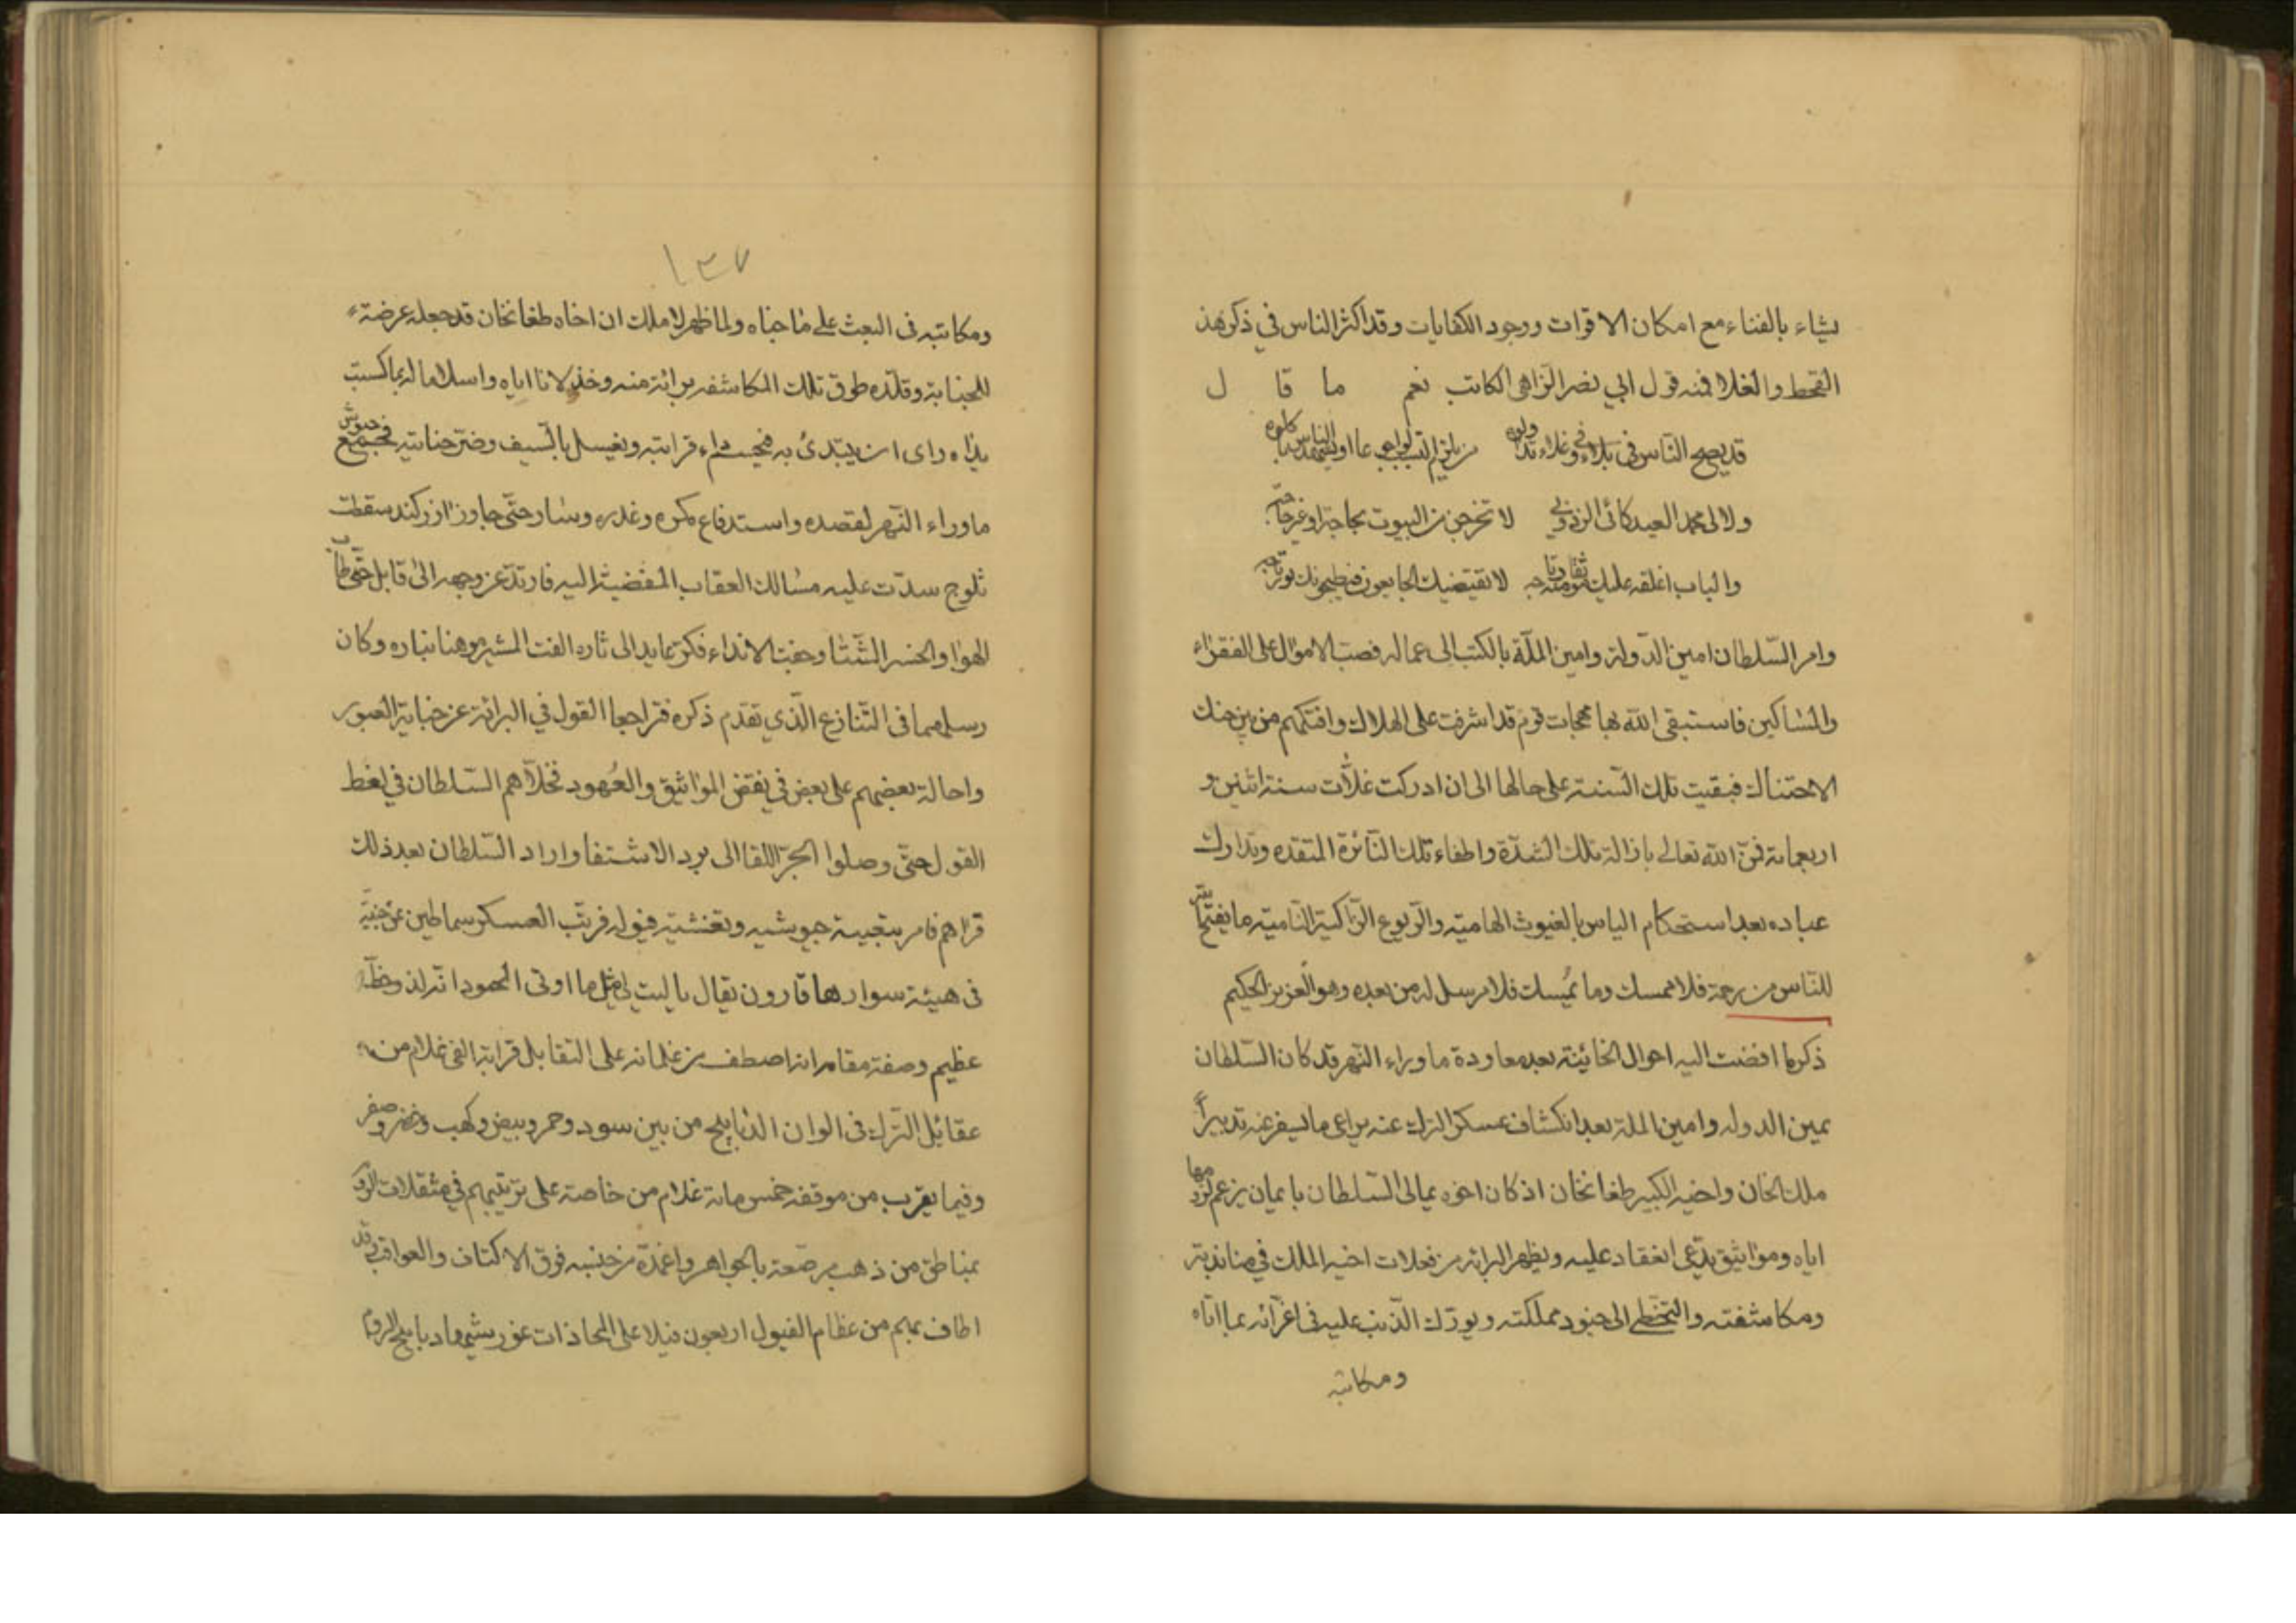 يشاء بالفناء مع امكان الاقوات ووجود الكفايات وقد اكثر الناس في ذكر هذ
القحط والغلا فمنه قول ابي نصر الزاهي الكاتب نعم ما قا ل
قد يصبح الناس في بلاء وفي غلاء
لا تخرجن من البيوت بحاجة او غير حاجة
والباب اغلقه عليك لا يقتضيك الجايعون فيطبخونك
وامر السّلطان امين الدّولة وامين الملّة بالكتب الى عماله فصبّ الاموال على الفقراء
والمساكين فاستبقى الله بها مهجات قوم قد اشرفت على الهلاك وافتكهم من بين حنك
الاحتناك فبقيت تلك السّنة على حالها الى ان ادركت غلّات سنة اثنين و
اربعماية فمنّ الله تعالى بازالة تلك الشدّة واطفاء تلك النّائرة المتقده وتدارك
عباده بعد استحكام الياس بالغيوث الهاميّة والرّيوع الزّاكية النّامية ما يفتح
للنّاس من رحمة فلا ممسك وما يُمسك فلا مرسل له من بعده وهو العزيز الحكيم
ذكر ما افضت اليه احوال الخانية بعد معاودة ما وراء النّهر قد كان السّلطان
يمين الدوله وامين الملة بعد انكشاف عسكر الترك عنه يراعى ما يسفر عنه تدبير
ملك الخان واخيه الكبير طغانخان اذ كان اخوه يمالى السّلطان بايمان يزعم
اياه ومواثيق يدّعى انعقاد عليه ويظهر البرائة من فعلات اخيه الملك في منابذته
ومكاشفته والتخطّى الى حدود مملكته ويورّك الذّنب عليه في اغرائه بما اتاه
ومكاتبته
١٣٧
ومكاتبته فى البعث على ما جناه ولما ظهر لاملك ان اخاه طغانخان قد جعله عرضة
للجناية وقلّده طوق تلك المكاشفه برائة منه وخذلانا اياه واسلاما له بما كسبت
يداه راى ان يبتدئ به فيحسم داء قرابته ويغسل بالسّيف وضر جنايته فجمع جيوش
ماوراء النّهر لقصده واستدفاع مكره وغدره وسار حتّى جاوز اوزكند سقطت
ثلوج سدّت عليه مسالك العقاب المفضية اليه فارتدّ عن وجهه الى قابل حتّى طاب
الهوا وانحسر الشّتا وجفّت الانداء فكرّ عايدا الى ثاره وكان
رسلهما فى التّنازع الّذي تقدم ذكره فتراجعا القول في البرائة عن جناية العبور
واحالة بعضهم على بعض في نقض المواثيق والعُهود فخلّاهم السّلطان في لغط
القول حتّى وصلوا الى برد الاشتفا واراد السّلطان بعد ذلك
قراهم فامر بتعبية جيوشه وتغشية فيوله فرتّب العسكر سماطين عن جنبيّه
فى هيئة سوار هاقارون يقال يا ليت لى مثل ما اوتى المحمود انّه لذو حظّ
عظيم وصفة مقامه انه اصطف من غلمانه على التقابل قرابة الفى غلام من
عقايل الترك فى الوان الدّبابيج من بين سود وحمر وبيض وكهب وخضر وصفر
وفيما يقرب من موقفه خمس ماية غلام من خاصته على ترتيبهم في مثقلات
بمناطق من ذهب مرصّعة بالجواهر واغمدة من جنسه فوق الاكتاف والعواتق وقد
اطاف بهم من عظام الفيول اربعون فيلا على المحاذات